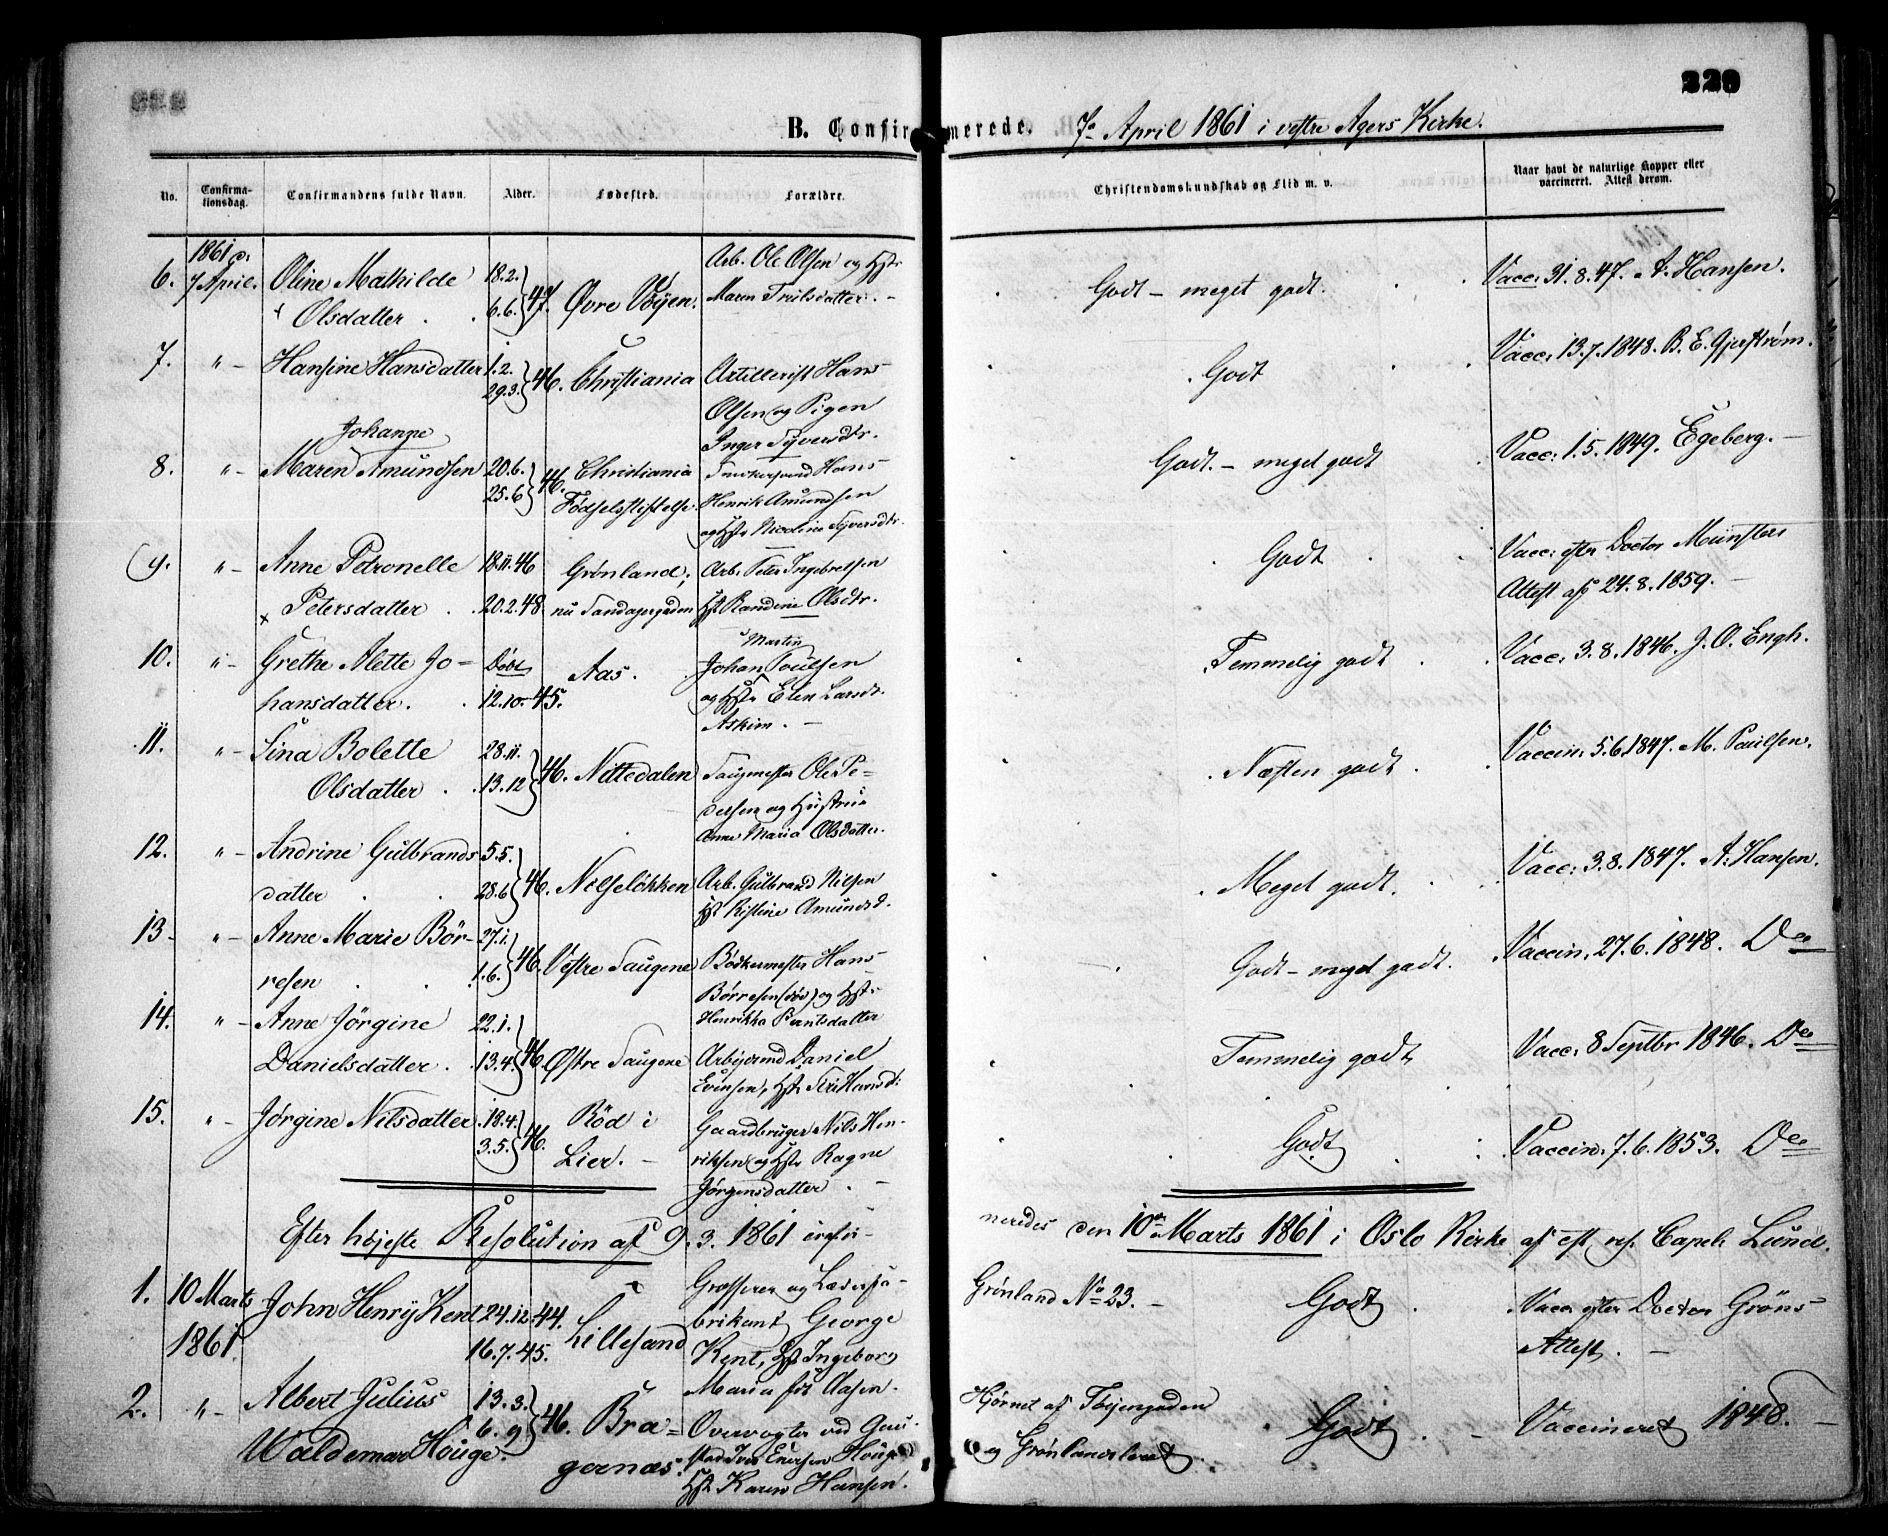 339
B. Confirmerede. 7de April 1861 i vestre Agers Kirke.
No. Confirmationsdag. Confirmandens fulde Navn. Alder. Fødested. Forældre. Christendomskundskab og Flid m. v. Naar havt de naturlige Kopper eller vaccineret. Attest derom.
1861 d.
6. 7 April. Oline Mathilde 18.2. Arb. Ole Olsen og Hst
Olsdatter 6.6. 47. Øvre Vøÿen. Maren Trulsdatter. Godt – meget godt. Vacc: 31.8.47. A. Hansen.
7. " – Hansine Hansdatter 1.2. 29.3. 46. Christiania Artillerist Hans Godt Vacc: 13.7.1848. B. E. Gjerstrøm.
Olsen og Pigen
Inger Syversdtr.
Johanne
8. " – Maren Amundsen 20.6. 25.6 46. Christiania Snedkersvend Hans Godt. – meget godt Vacc: 1.5.1849. Egeberg. –
Fødselsstiftelse Henrik Amundsen
og Hst Nicoline Syversdtr.
9. " – Anne Petronelle 18.11.46 Grønland; Arb. Peter Ingebretsen Godt Vacc: efter Doctor Münsters
x Petersdatter 20.2.48. nu Sandagergaden Hst Randine Olsdtr. Attest af 24.8.1859. –
10. " – Grethe Alette Jo= Døbt Aas. Johan Martin Poulsen Temmelig godt Vacc: 3.8.1846. J. O. Engh.
hansdatter. 12.10.45. og Hst Elen Larsdt.
Askim. –
11. " – Sina Bolette 28.11. Nittedalen Saugmester Ole Pe= Næsten godt Vaccin: 5.6.1847. M. Paulsen.
Olsdatter 13.12 46. dersen og Hustrue
Anne Maria Olsdatter.
12. " – Andrine Gulbrands 5.5. Nilseløkken Arb. Gulbrand Nilsen Meget godt. Vacc: 3.8.1847. A. Hansen.
datter 28.6 46. Hst Kistine Amundsd.
13 – " – Anne Marie Bör– 27.1. Vestre Saugene Bødkermester Hans Godt – meget godt. Vaccin. 27.6.1848. Do
resen 1.6. 46. Børresen (død) og Hst
Henrikka Berntsdatter
14. " – Anne Jörgine 22.1. Østre Saugene Arbeismd Daniel Temmelig godt Vacc: 8 Septbr 1846. Do
Danielsdatter. 13.4. 46. Evensen, Hst Siri Hansdt:
15. " – Jørgine Nilsdatter 18.4. Röd i Gaardbruger Nils Hen– Godt Vaccin. 7.6.1853. Do
3.5. 46. Lier. – riksen og Hst Ragne
Jørgensdatter. –
Efter højeste Resolution af 9. 3. 1861
neredes den 10de Marts 1861 i Oslo Kirke af est res. Capel: Lund.
1. 10 Marts John Henrÿ Kent 24.12.44. Lillesand Grosserer og Læderfa– Grønland No 23. – Godt Vacc efter Doctor Grøns
1861. 16.7.45. brikant George Attest. –
Kent, Hst Ingeborg
Maria fød Aasen.
2. " – Albert Julius 13.3. Bra= Overvogter ved Gau Hjørnet af Tøijengaden Godt Vaccineret 1848. –
Waldemar Houge. 6.9 46. gernæs. stad Iver Enersen Houge og Grønlandsleret
Hst Karen Hansen.